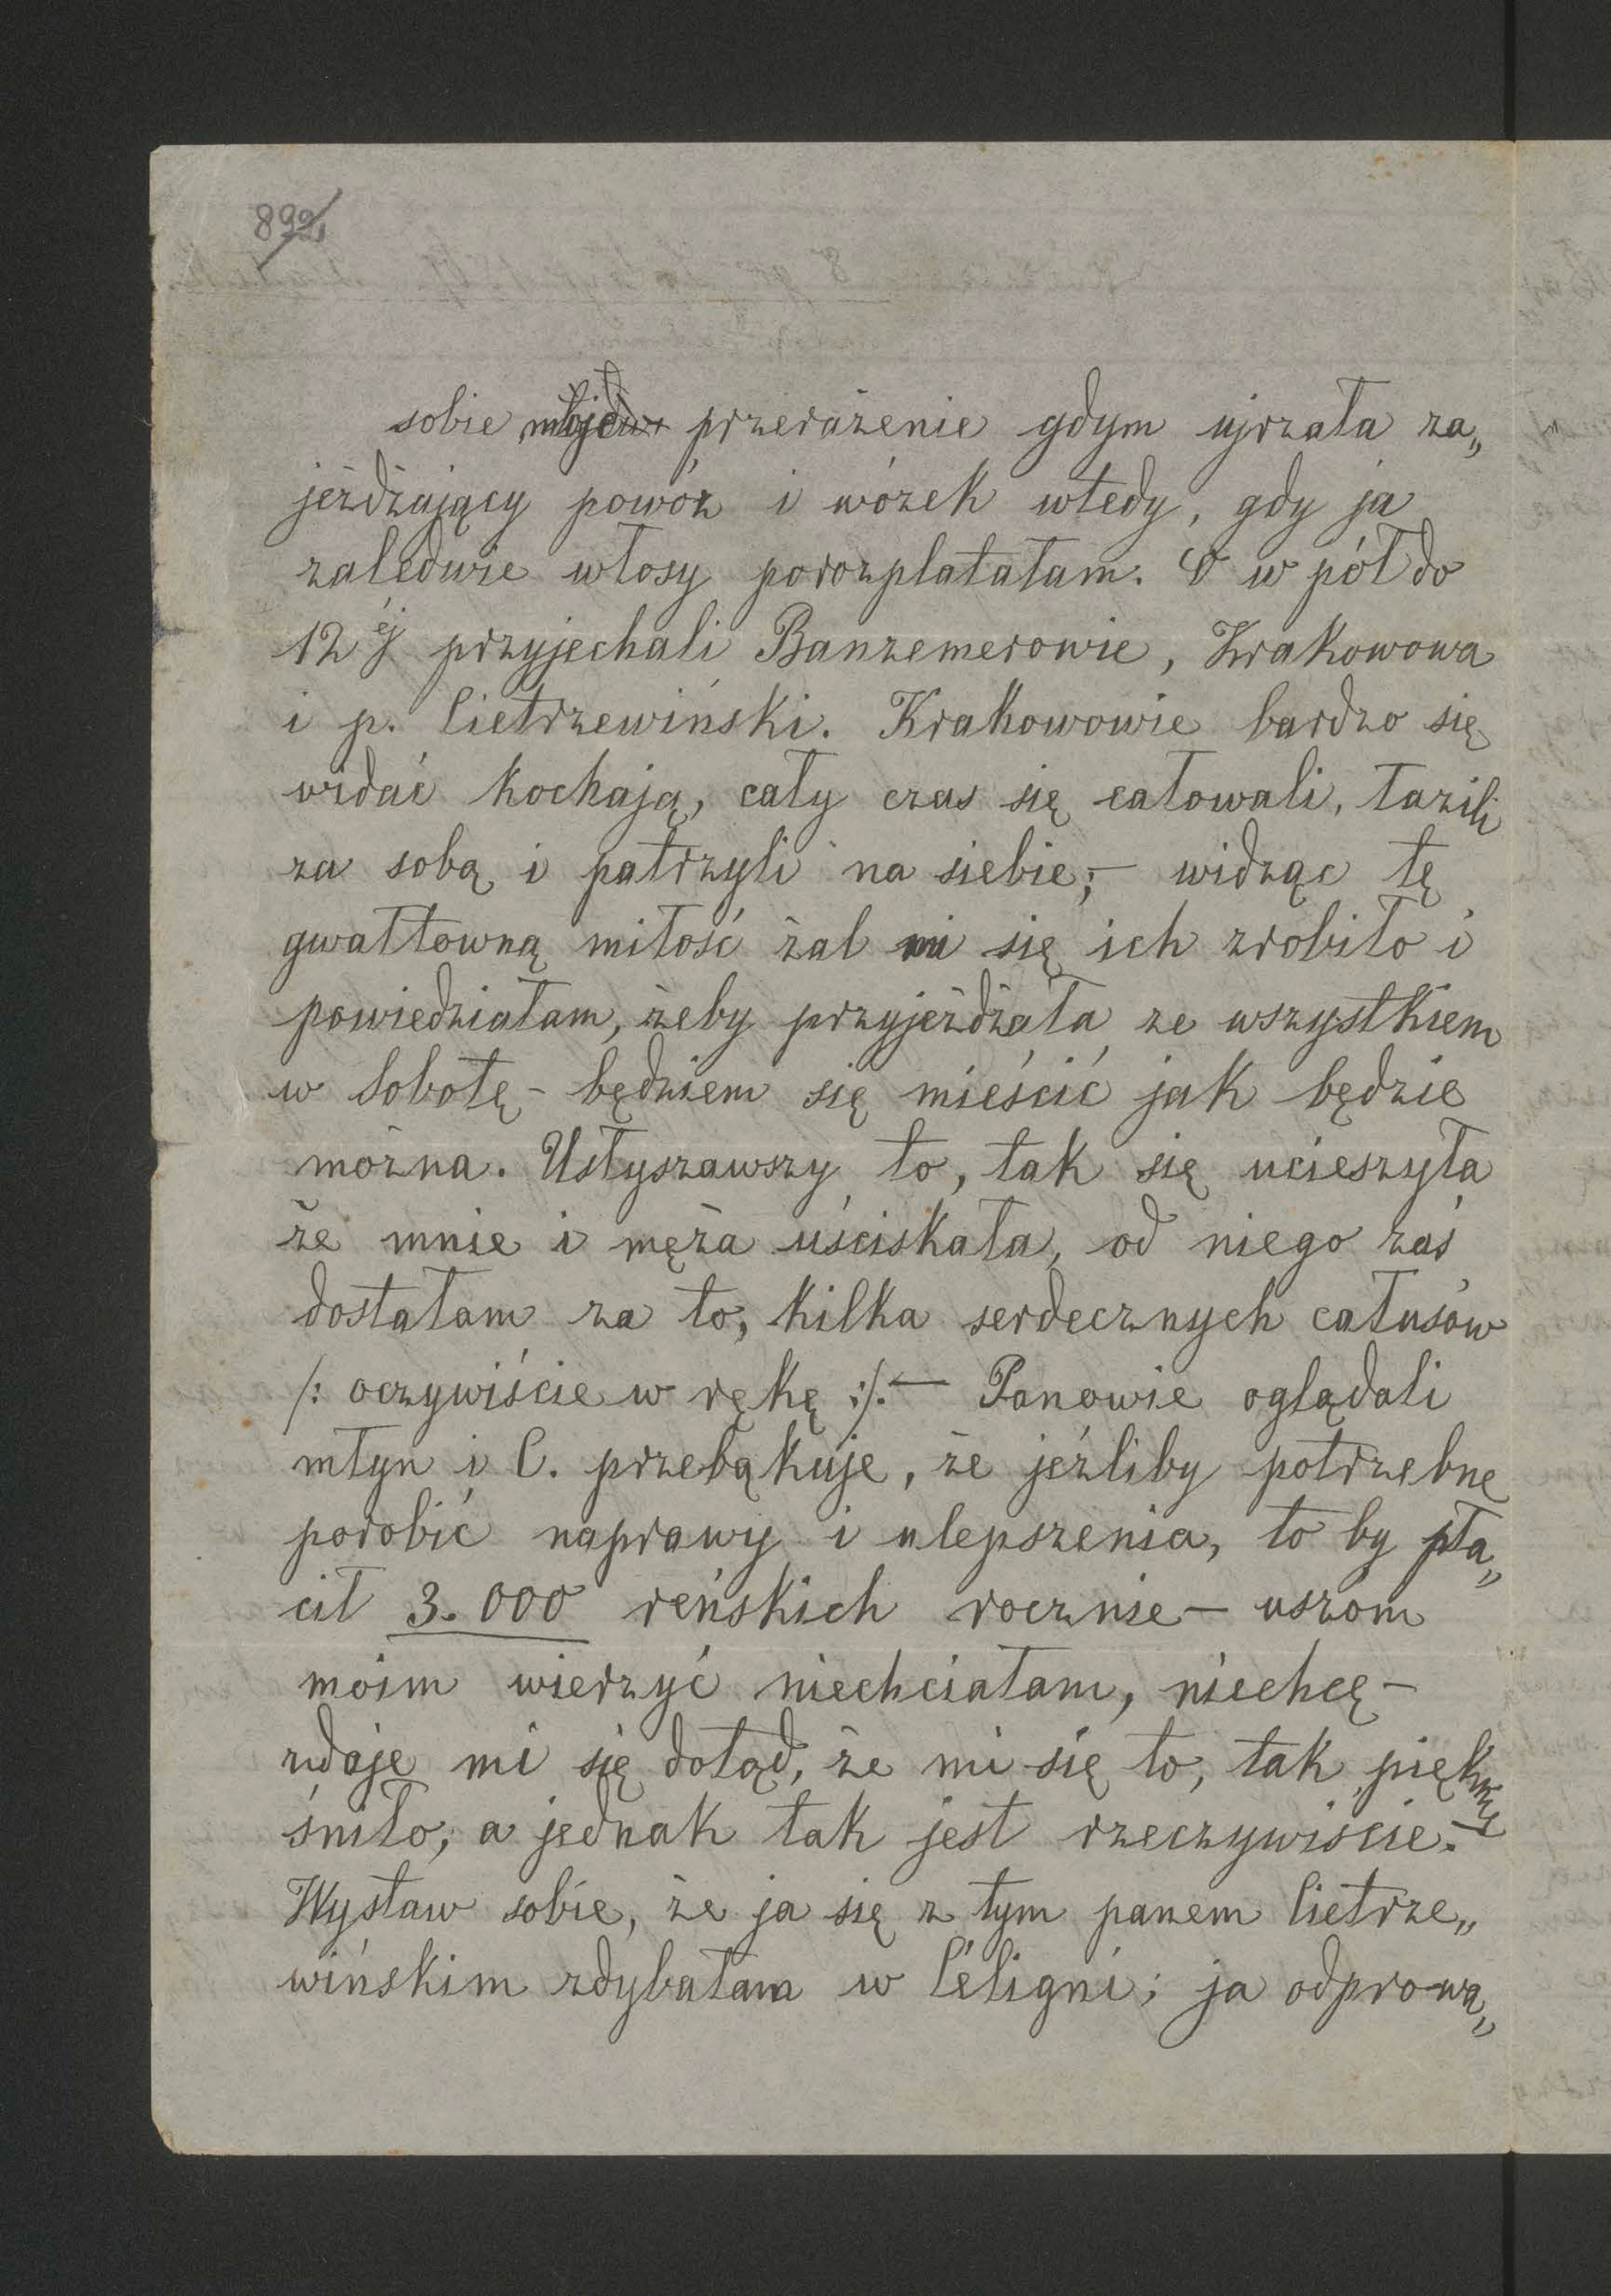 892
sobie moje przerażenie gdym ujrzała za„
jeżdżający powóz i wózek wtedy, gdy ja
zaledwie włosy porozplatałam. O w pół do
12éj przyjechali Banzemerowie, Krakowowa
i p. Cietrzewiński. Krakowowie bardzo się
widać kochają, cały czas się całowali, łazili
za sobą i patrzyli na siebie;— widząc tę
gwałtowną miłość żal mi się ich zrobiło i
powiedziałam, żeby przyjeżdżała ze wszystkiem
w Sobotę - będziem się mieścić jak będzie
można. Usłyszawszy to, tak się ucieszyła
że mnie i męża uściskała, od niego zaś
dostałam za to, kilka serdecznych całusów
/: oczywiście w rękę :/. — Panowie oglądali
młyn i C. przebąkuje, że jeźliby potrzebne
porobić naprawy i ulepszenia, to by pła„
cił 3.000 reńskich rocznie — uszóm
moim wierzyć niechciałam, niechcę —
zdaje mi się dotąd, że mi się to, tak pięknie
śniło, a jednak tak jest rzeczywiście. —
Wystaw sobie, że ja się z tym panem Cietrze„
wińskim zdybałam w Céligni; ja odprowa„